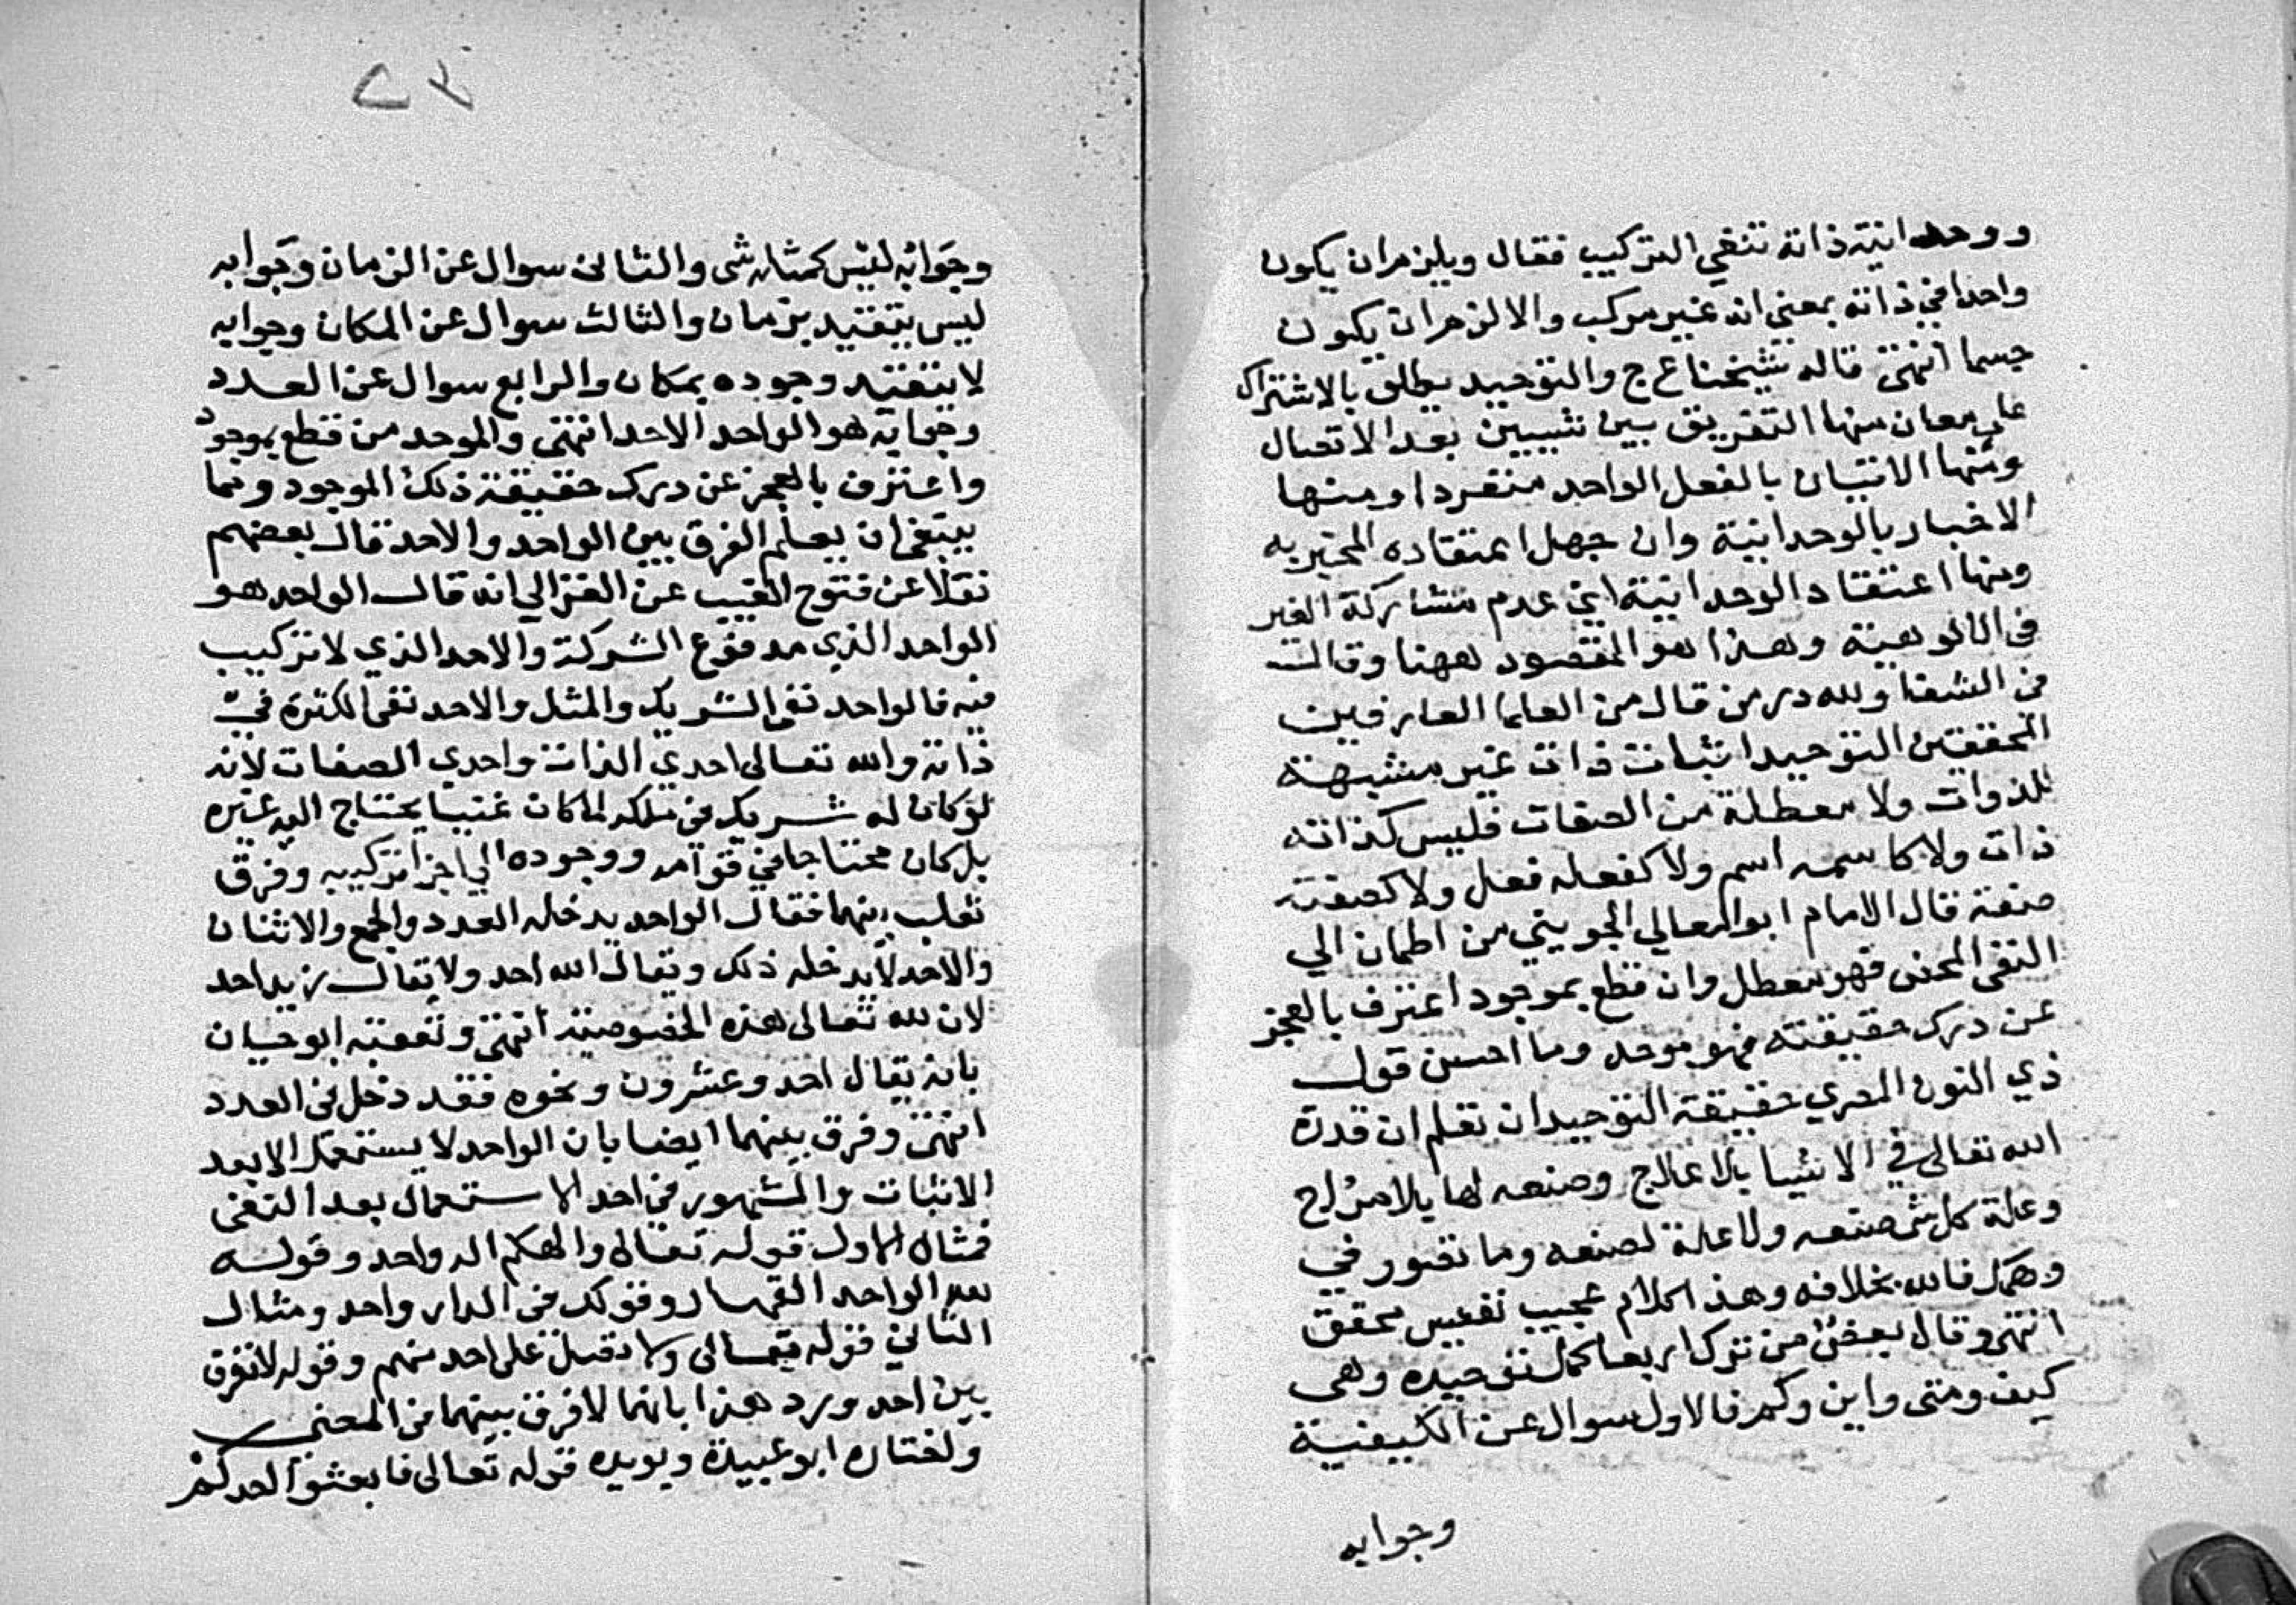 ووحدانية ذاته تنفي التركيب فقال ويلزم ان يكون
واحدا في ذاته بمعنى انه غير مركب والا لزم ان يكون
جسما انتهى قاله شيخنا ع ج والتوحيد يطلق بالاشتراك
على معان منها التفريق بين شيئين بعد الاتصال
ومنها الاتيان بالفعل الواحد منفردا ومنها
الاخبار بالوحدانية وان جهل اعتقاده المخبر به
ومنها اعتقاد الوحدانية اي عدم مشاركة الغير
في الالوهية وهذا هو المقصود ههنا وقال
في الشفا ولله در من قال من العلما العارفين
المحققين التوحيد اثبات ذات غير مشبهة
للذوات ولا معطلة من الصفات فليس كذاته
ذات ولا كاسمه اسم ولا كفعله فعل ولا كصفته
صفة قال الامام ابو المعالي الجويني من اطمان الي
النفي المحض فهو معطل وان قطع بموجود اعترف بالعجز
عن درك حقيقته فهو موحد وما احسن قول
ذي النون المصري حقيقة التوحيد ان تعلم ان قدرة
الله تعالى في الاشيا بلا علاج وصنعه لها بلا مزاج
وعلة كل شي صنعه ولا علة لصنعه وما تصور في
وهمك فالله بخلافه وهذا كلام عجيب نفيس محقق
انتهى وقال بعضهم من ترك اربعا كمل توحيده وهي
كيف ومتى واين وكم فالاول سوال عن الكيفية
وجوابه
٧٢
وجوابه ليس كمثله شي والثاني سوال عن الزمان وجوابه
ليس يتقيد بزمان والثالث سوال عن المكان وجوابه
لا يتقيد وجوده بمكان والرابع سوال عن العدد
وجوابه هو الواحد الاحد انتهى والموحد من قطع بموجود
واعترف بالعجز عن درك حقيقة ذلك الموجود ومما
ينبغي ان يعلم الفرق بين الواحد والاحد قال بعضهم
نقلا عن فتوح الغيب عن الغزالي انه قال الواحد هو
الواحد الذي مدفوع الشركة والاحد الذي لا تركيب
فيه فالواحد نفي الشريك والمثل والاحد نفي الكثرة في
ذاته والله تعالى احدي الذات واحدي الصفات لانه
لو كان له شريك في ملكه لما كان غنيا يحتاج اليه غيره
بل كان محتاجا في قوامه ووجوده الي اجزا تركيبه وفرق
ثعلب بينهما فقال الواحد يدخله العدد والجمع والاثنان
والاحد لا يدخله ذلك ويقال الله احد ولا يقال زيد احد
لان لله تعالى هذه الخصوصية انتهى وتعقبه ابو حيان
بانه يقال احد وعشرون ونحوه فقد دخل في العدد
انتهى وفرق بينهما ايضا بان الواحد لا يستعمل الا بعد
الاثبات والمشهور في احد الاستعمال بعد النفي
فمثال الاول قوله تعالى والهكم اله واحد وقوله
الواحد القهار وقولك في الدار واحد ومثال
الثاني قوله تعالى ولا تصل على احد منهم وقوله لا نفرق
بين احد ورد هذا بانهما لا فرق بينهما في المعنى
واختاره ابو عبيدة ويويده قوله تعالى فابعثوا احدكم